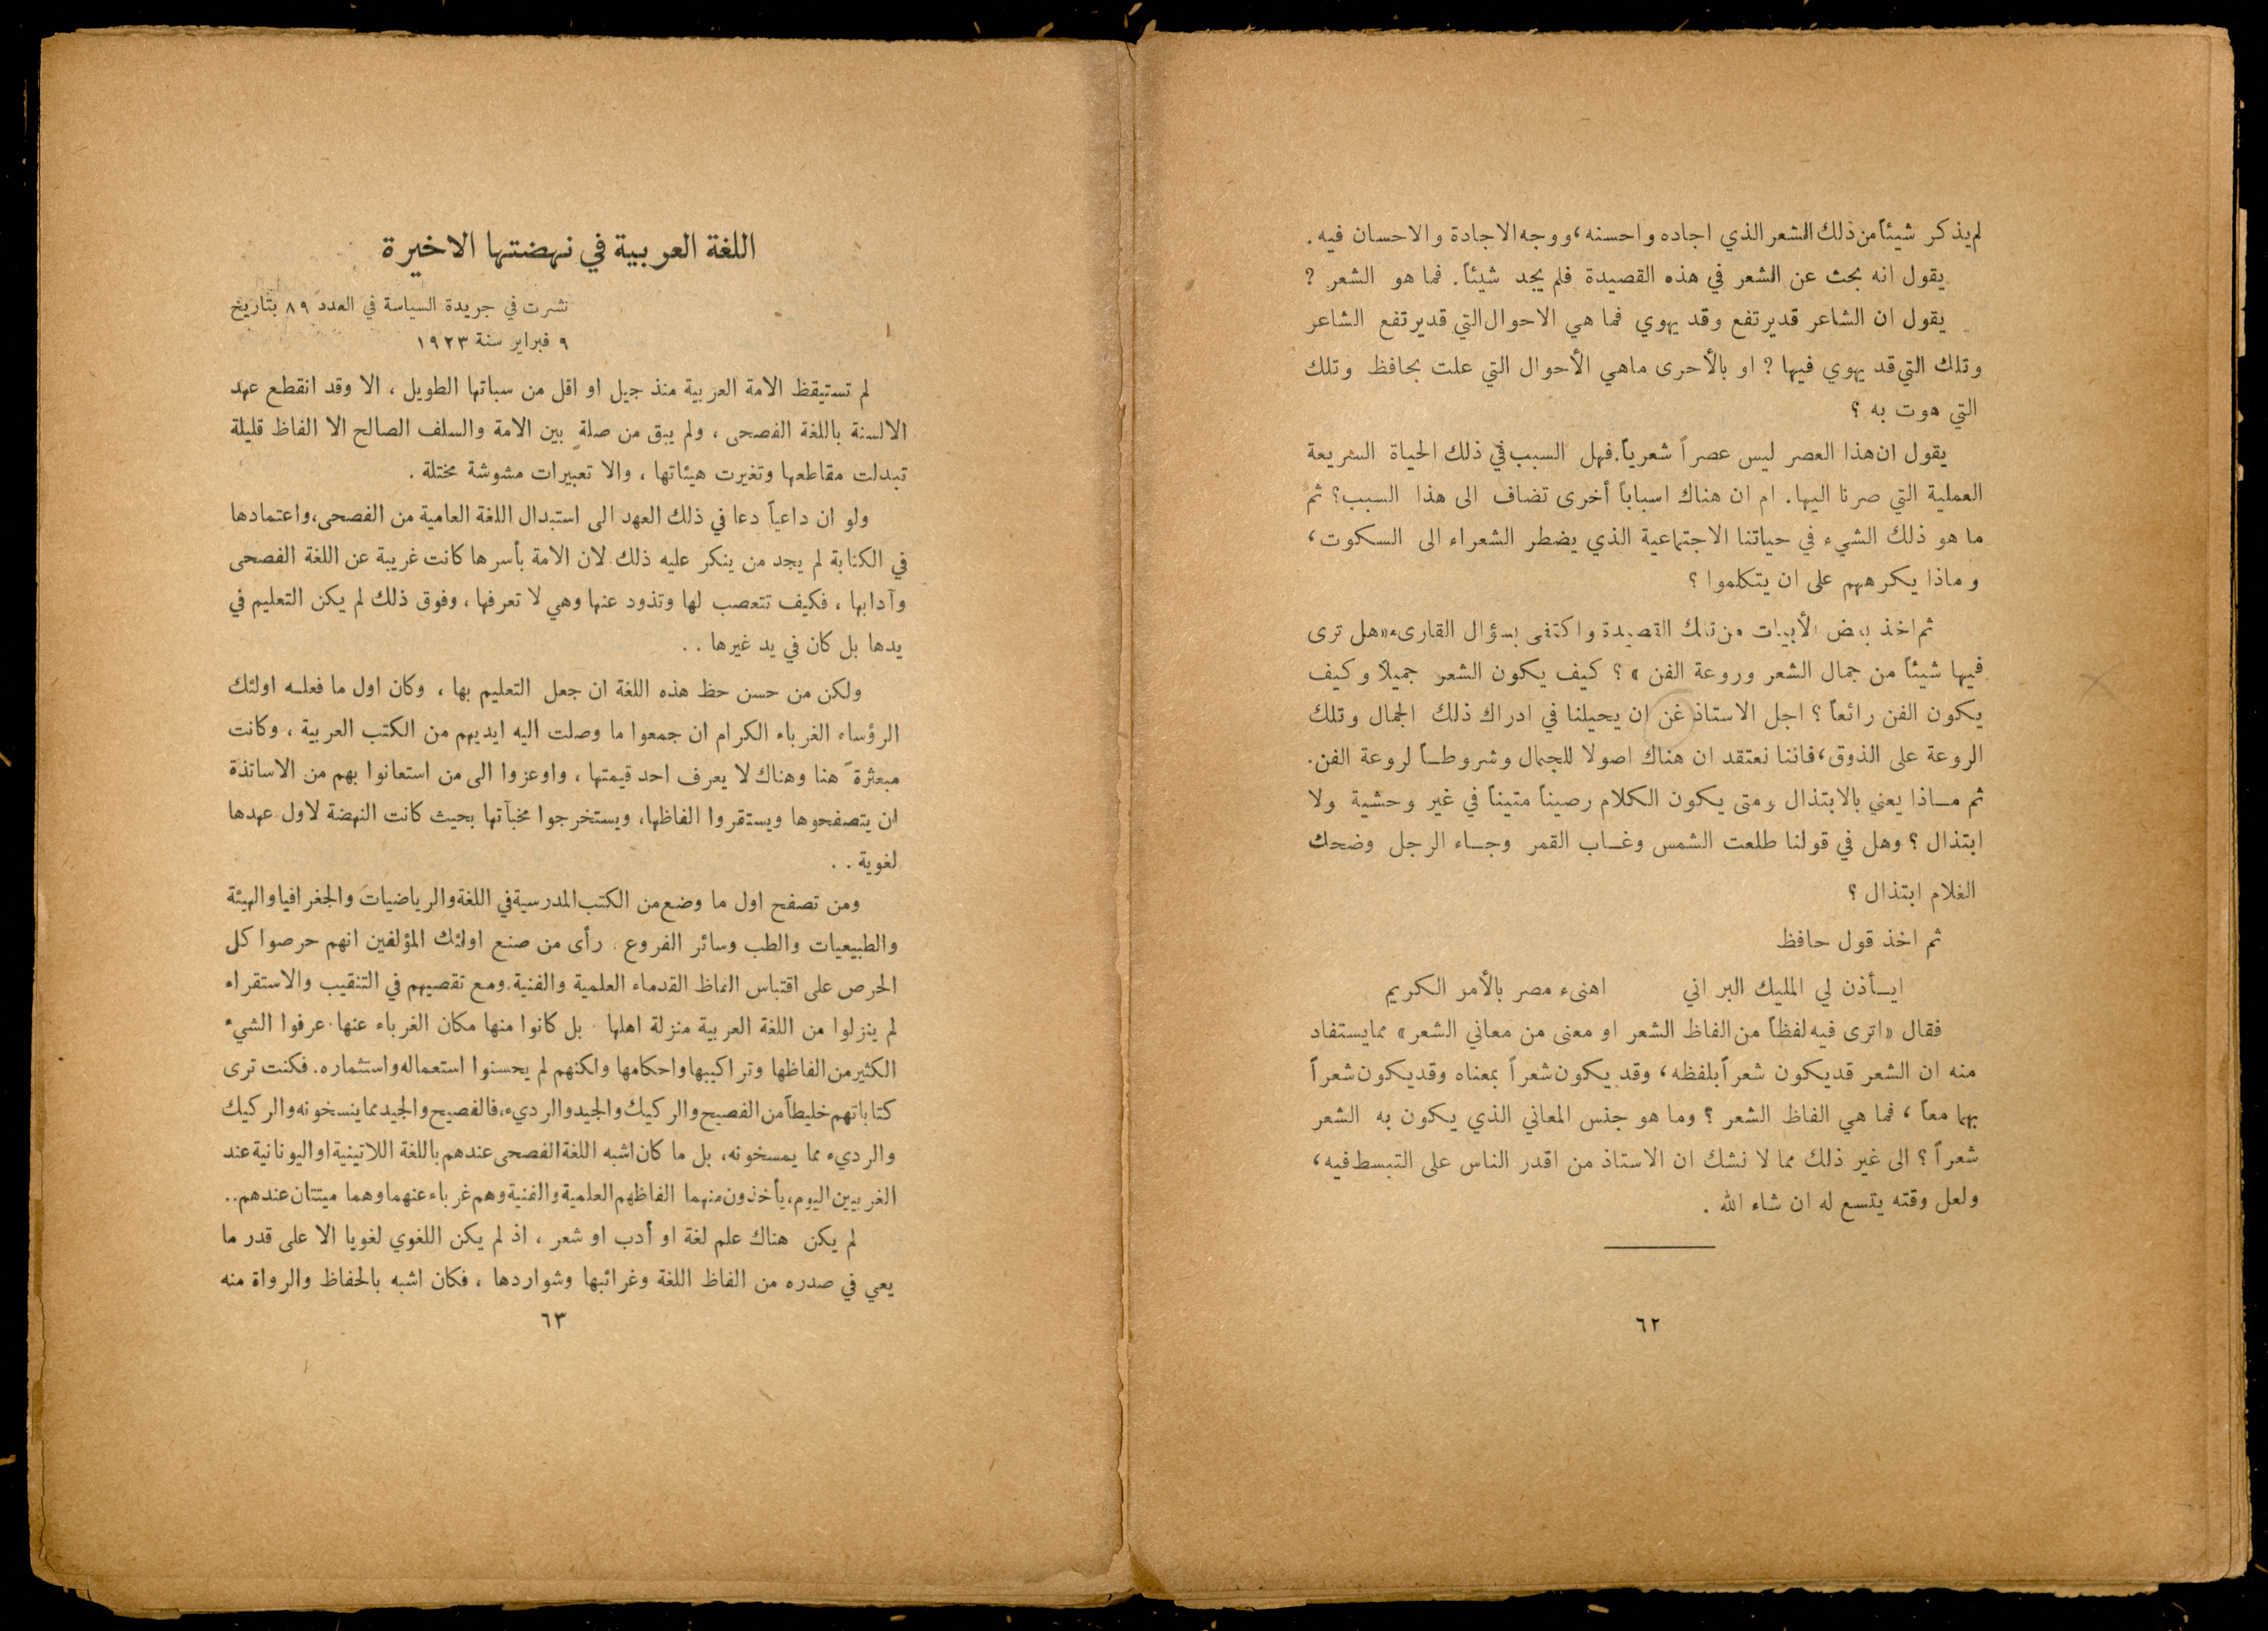 لم يذكر شيئاً من ذلك الشعر الذي اجاده واحسنه، ووجه الاجادة والاحسان فيه.
يقول انه بحث عن الشعر في هذه القصيدة فلم يجد شيئاً. فما هو الشعر ?
يقول ان الشاعر قد يرتفع وقد يهوي فما هي الاحوال التي قد يرتفع الشاعر
وتلك التي قد يهوي فيها ? او بالأحرى ماهي الأحوال التي علت بحافظ وتلك
التي هوت به ؟
يقول ان هذا العصر ليس عصراً شعرياً. فهل السبب في ذلك الحياة السريعة
العملية التي صرنا اليها. ام ان هناك اسباباً أخرى تضاف الى هذا السبب؟ ثم
ما هو ذلك الشيء في حياتنا الاجتماعية الذي يضطر الشعراء الى السكوت،
وماذا يكرههم على ان يتكلموا ؟
ثم اخذ بعض الأبيات من تلك القصيدة واكتفى بسؤال القارىء «هل ترى
فيها شيئاً من جمال الشعر وروعة الفن » ؟ كيف يكون الشعر جميلاً وكيف
يكون الفن رائعاً ؟ اجل الاستاذ غن ان يحيلنا في ادراك ذلك الجمال وتلك
الروعة على الذوق، فاننا نعتقد ان هناك اصولا للجمال وشروطـاً لروعة الفن.
ثم مـاذا يعني بالابتذال ومتى يكون الكلام رصيناً متيناً في غير وحشية ولا
ابتذال ؟ وهل في قولنا طلعت الشمس وغـاب القمر وجـاء الرجل وضحك
الغلام ابتذال ؟
ثم اخذ قول حافظ
ايـأذن لي المليك البر اني اهنىء مصر بالأمر الكريم
فقال «اترى فيه لفظاً من الفاظ الشعر او معنى من معاني الشعر» مما يستفاد
منه ان الشعر قد يكون شعراً بلفظه، وقد يكون شعراً بمعناه وقد يكون شعراً
بهما معاً ، فما هي الفاظ الشعر ؟ وما هو جنس المعاني الذي يكون به الشعر
شعراً ؟ الى غير ذلك مما لا نشك ان الاستاذ من اقدر الناس على التبسط فيه،
ولعل وقته يتسع له ان شاء الله .
٦٢
اللغة العربية في نهضتها الاخيرة
نشرت في جريدة السياسة في العدد ٨٩ بتاريخ
٩ فبراير سنة ١٩٢٣
لم تستيقظ الامة العربية منذ جيل او اقل من سباتها الطويل ، الا وقد انقطع عهد
الالسنة باللغة الفصحى ، ولم يبق من صلةٍ بين الامة والسلف الصالح الا الفاظ قليلة
تبدلت مقاطعها وتغيرت هيئاتها ، والا تعبيرات مشوشة مختلة .
ولو ان داعياً دعا في ذلك العهد الى استبدال اللغة العامية من الفصحى، واعتمادها
في الكتابة لم يجد من ينكر عليه ذلك لان الامة بأسرها كانت غريبة عن اللغة الفصحى
وآدابها ، فكيف تتعصب لها وتذود عنها وهي لا تعرفها ، وفوق ذلك لم يكن التعليم في
يدها بل كان في يد غيرها . .
ولكن من حسن حظ هذه اللغة ان جعل التعليم بها ، وكان اول ما فعلـه اولئك
الرؤساء الغرباء الكرام ان جمعوا ما وصلت اليه ايديهم من الكتب العربية ، وكانت
مبعثرةً هنا وهناك لا يعرف احد قيمتها ، واوعزوا الى من استعانوا بهم من الاساتذة
ان يتصفحوها ويستقروا الفاظها، ويستخرجوا مخبآتها بحيث كانت النهضة لاول عهدها
لغوية . .
ومن تصفح اول ما وضع من الكتب المدرسية في اللغة والرياضيات والجغرافيا والهيئة
والطبيعيات والطب وسائر الفروع . رأى من صنع اولئك المؤلفين انهم حرصوا كل
الحرص على اقتباس الفاظ القدماء العلمية والفنية. ومع تقصيهم في التنقيب والاستقراء
لم ينزلوا من اللغة العربية منزلة اهلها . بل كانوا منها مكان الغرباء عنها. عرفوا الشيء
الكثير من الفاظها وتراكيبها واحكامها ولكنهم لم يحسنوا استعماله واستثماره. فكنت ترى
كتاباتهم خليطاً من الفصيح والركيك والجيد والرديء، فالفصيح والجيد مما ينسخونه والركيك
والرديء مما يمسخونه، بل ما كان اشبه اللغة الفصحى عندهم باللغة اللاتينية او اليونانية عند
الغربيين اليوم، يأخذون منهما الفاظهم العلمية والفنية وهم غرباء عنهما وهما ميتتان عندهم..
لم يكن هناك علم لغة او أدب او شعر ، اذ لم يكن اللغوي لغويا الا على قدر ما
يعي في صدره من الفاظ اللغة وغرائبها وشواردها ، فكان اشبه بالحفاظ والرواة منه
٦٣